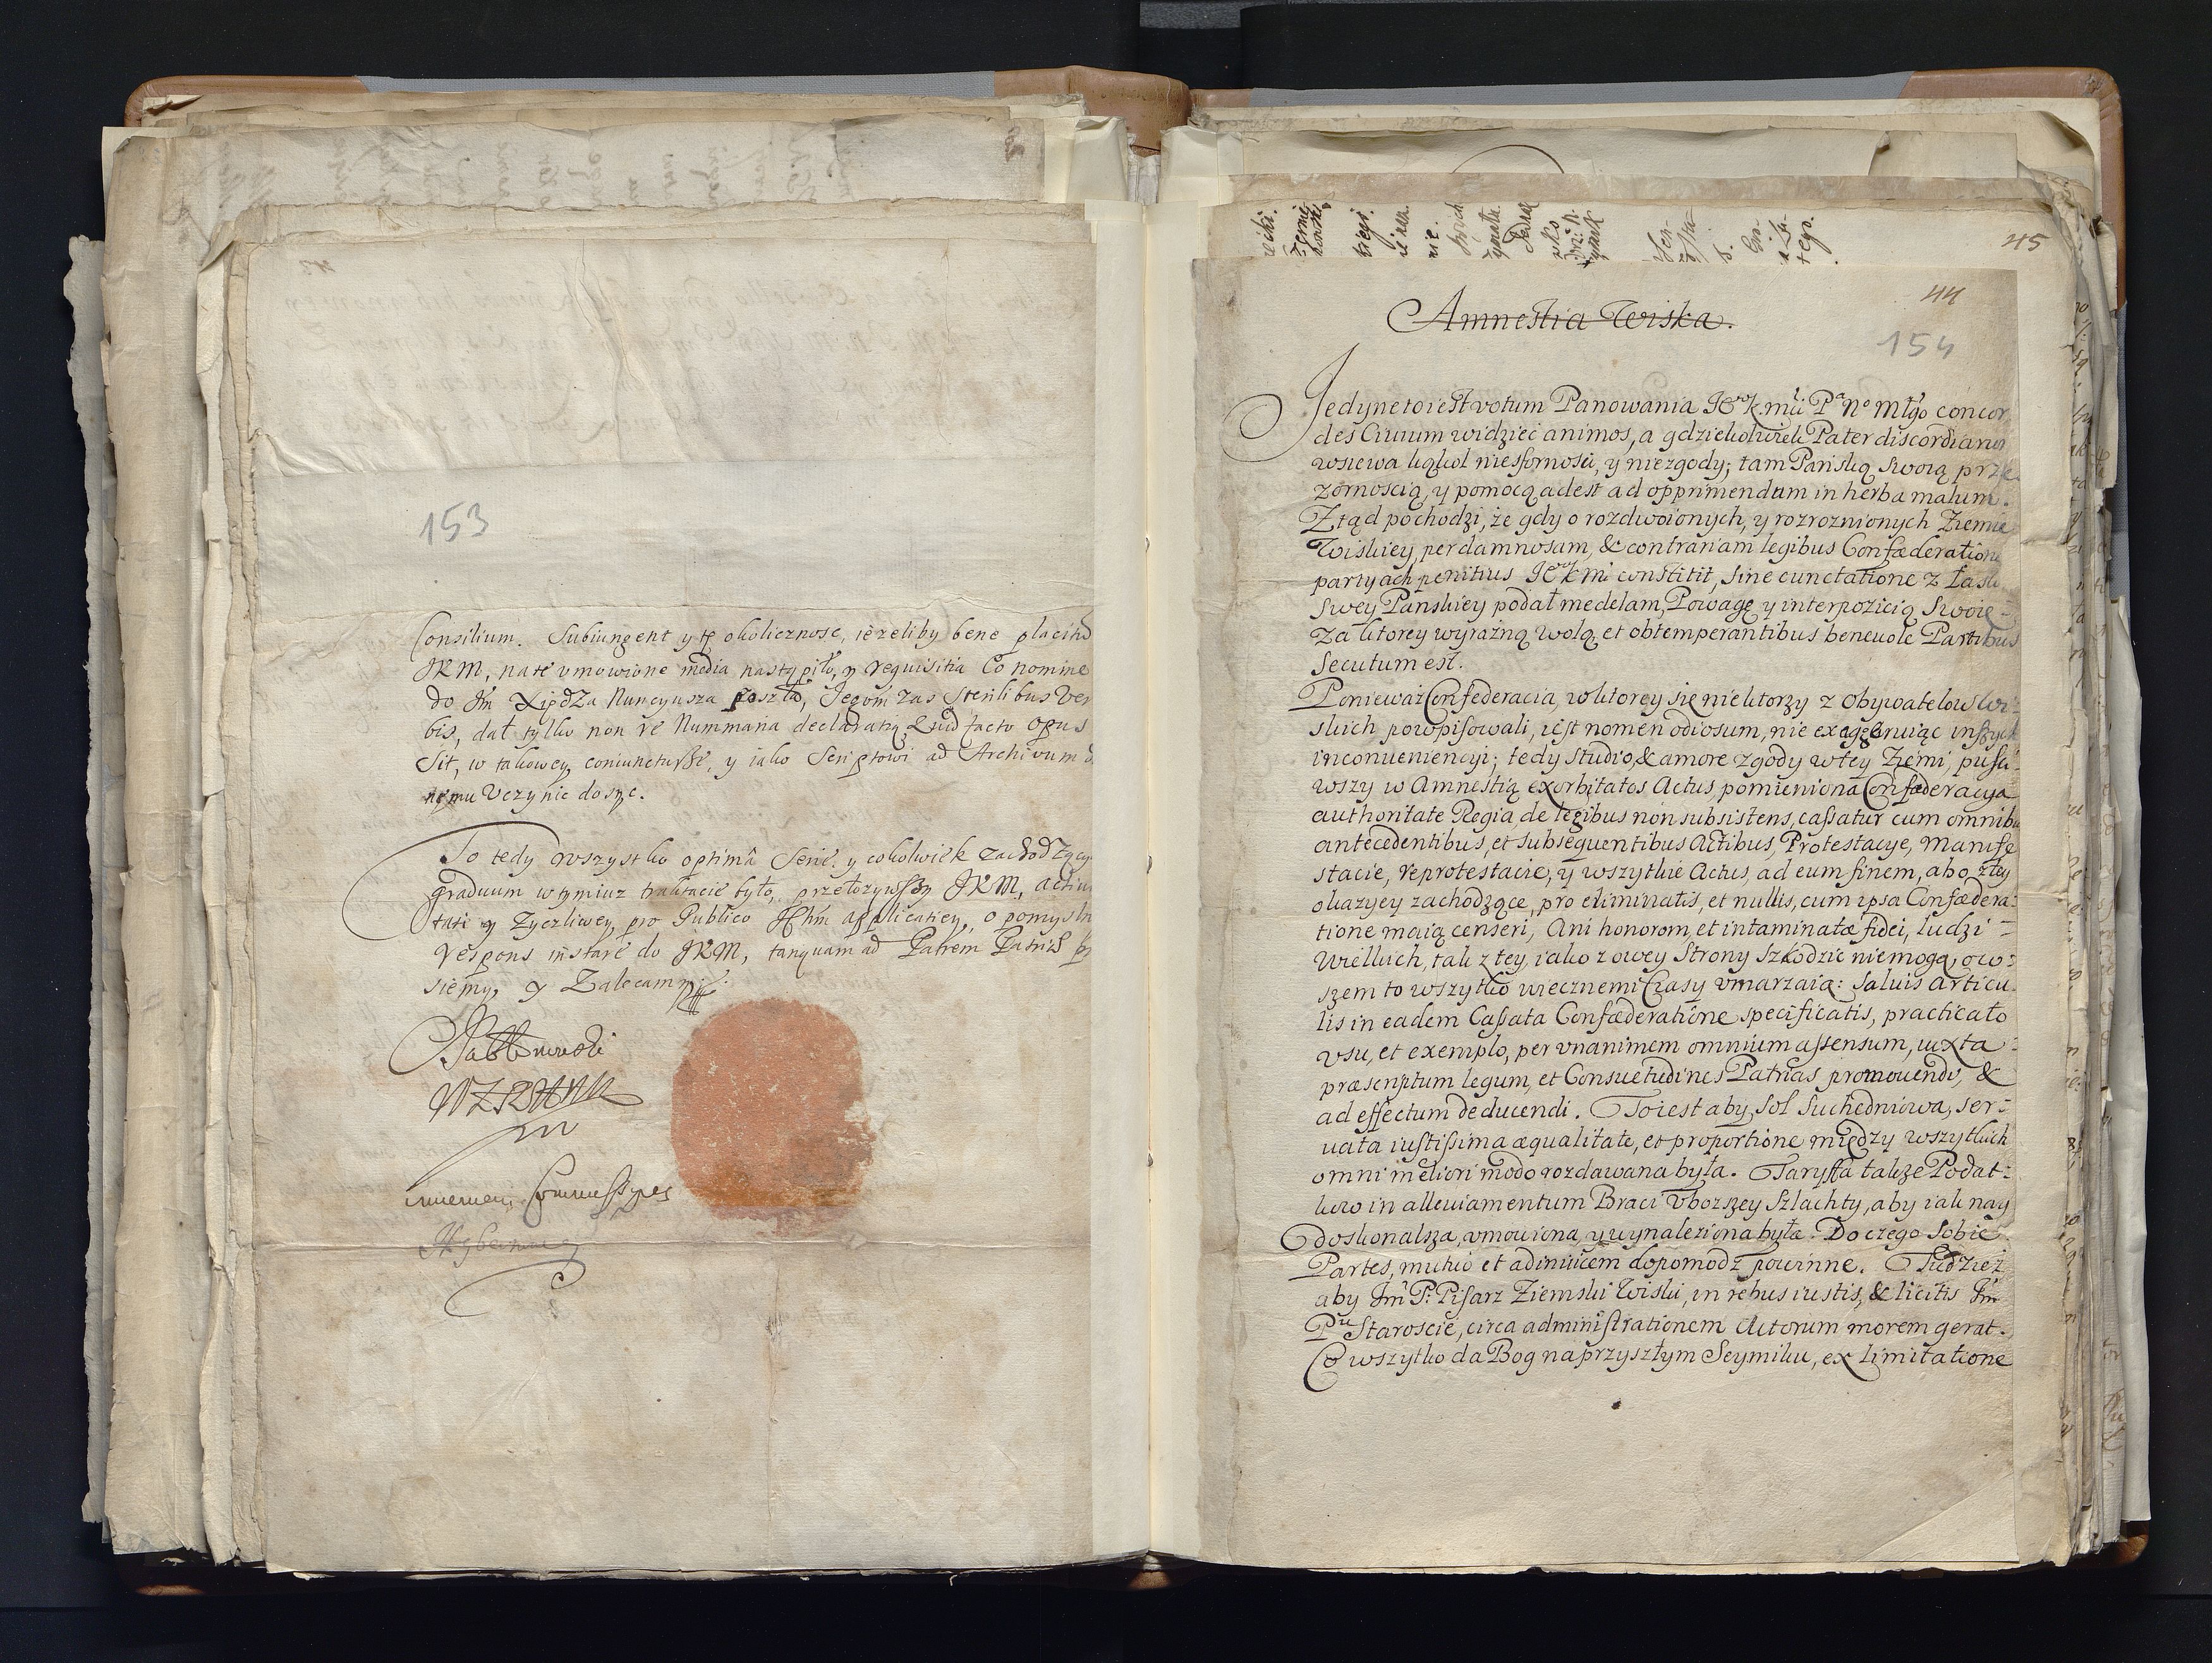 153
Consilium. Subiungent y tę okolicznosc, ieżeliby bene placito
JKM, na te vmowione media nastąpiło, y requisitia Co nomine
do Jm Xiędza Nuncyusza poszło, Jegom zas Sterilibus Ver
bis, dał tylko non re Nummaria declaratią, Quid facto opus
Sit, w takowey coniuncturze, y iako Scriptowi ad Archivum
nemu Vczynic dosyc.
To tedy wszystko optimâ Serie, y cokolwiek zachodzący
graduum w tymiuz traktacie było, przełozywszy JKM, activi
tati y Zyczliwey pro Publico Ichm applicatiey, o pomysln
respons instare do JKM, tanquam ad Patrem Patriæ pr
siemy, y Zalecamy.
Jabłonowski
WZRHWK
mp
imieniem Commissyey
45
44
Amnestia Wiska.
154
Jedyne to iest votum Panowania JEo K. mci Pa No Młgo concor
des Ciuium widzieć animos, a gdziekolwiek Pater discordiarum
wsiewa kąkol niesforności, y niezgody; tam Pańską swoią prze
zornoscią, y pomocą adest ad opprimendum in herba malum.
Ztąd pochodzi, że gdy o rozdwoionych, y rozroznionych Ziemie
Wiskiey, per damnosam, & contrariam legibus Confæderatione
partyach penitius JEo K Mi constitit, sine cunctatione z Łaski
swey Pańskiey podał medelam, Powagę y interpozicią Swoię
Za ktorey wyraźną wolą, et obtemperantibus beneuole Partibus
Secutum est.
Ponieważ Confederacia, w ktorey się niektorzy z Obywatelow Wi-
skich powpisowali, iest nomen odiosum, nie exaggeruiąc inszych
inconueniencyi; tedy studio, & amore zgody w tey Ziemi, pusci-
wszy w Amnestią exorbitatos Actus, pomieniona Confæderacya
authoritate Regia, de legibus non subsistens, cassatur cum omnibu
antecedentibus, et subsequentibus Actibus, Protestacye, Manife
stacie, reprotestacie, y wszytkie Actus, ad eum finem, abo z tey
okazyey zachodzące, pro eliminatis, et nullis, cum ipsa Confædera-
tione maią censeri, Ani honorom, et intaminatæ fidei, ludzi
Wielkich, tak z tey, iako z owey Strony Szkodzic niemogą, ow-
szem to wszytko wiecznemi Czasy vmarzaią: Saluis Articu
lis in eadem Cassata Confæderatione specificatis, practicato
vsu, et exemplo, per vnanimem omnium assensum, iuxta
præscriptum legum, et Consuetudines Patrias promouendi, &
ad effectum deducendi. To iest aby Sol Suchedniowa, ser-
uata iustissima æqualitate, et proportione między wszytkich
omni meliori modo rozdawana była. Taryffa także Podat-
kow in alleuiamentum Braci Vboższey Szlachty, aby iak nay
doskonalsza, vmowiona, y wynaleziona była. Do czego Sobie
Partes, mutuo et adinuicem dopomodz powinne. Tudziez
aby Jm P. Pisarz Ziemski Wiski, in rebus iustis, & licitis Jm
Pu Staroscie, circa administrationem Actorum morem gerat.
Co wszytko da Bog na przyszłym Seymiku, ex limitatione